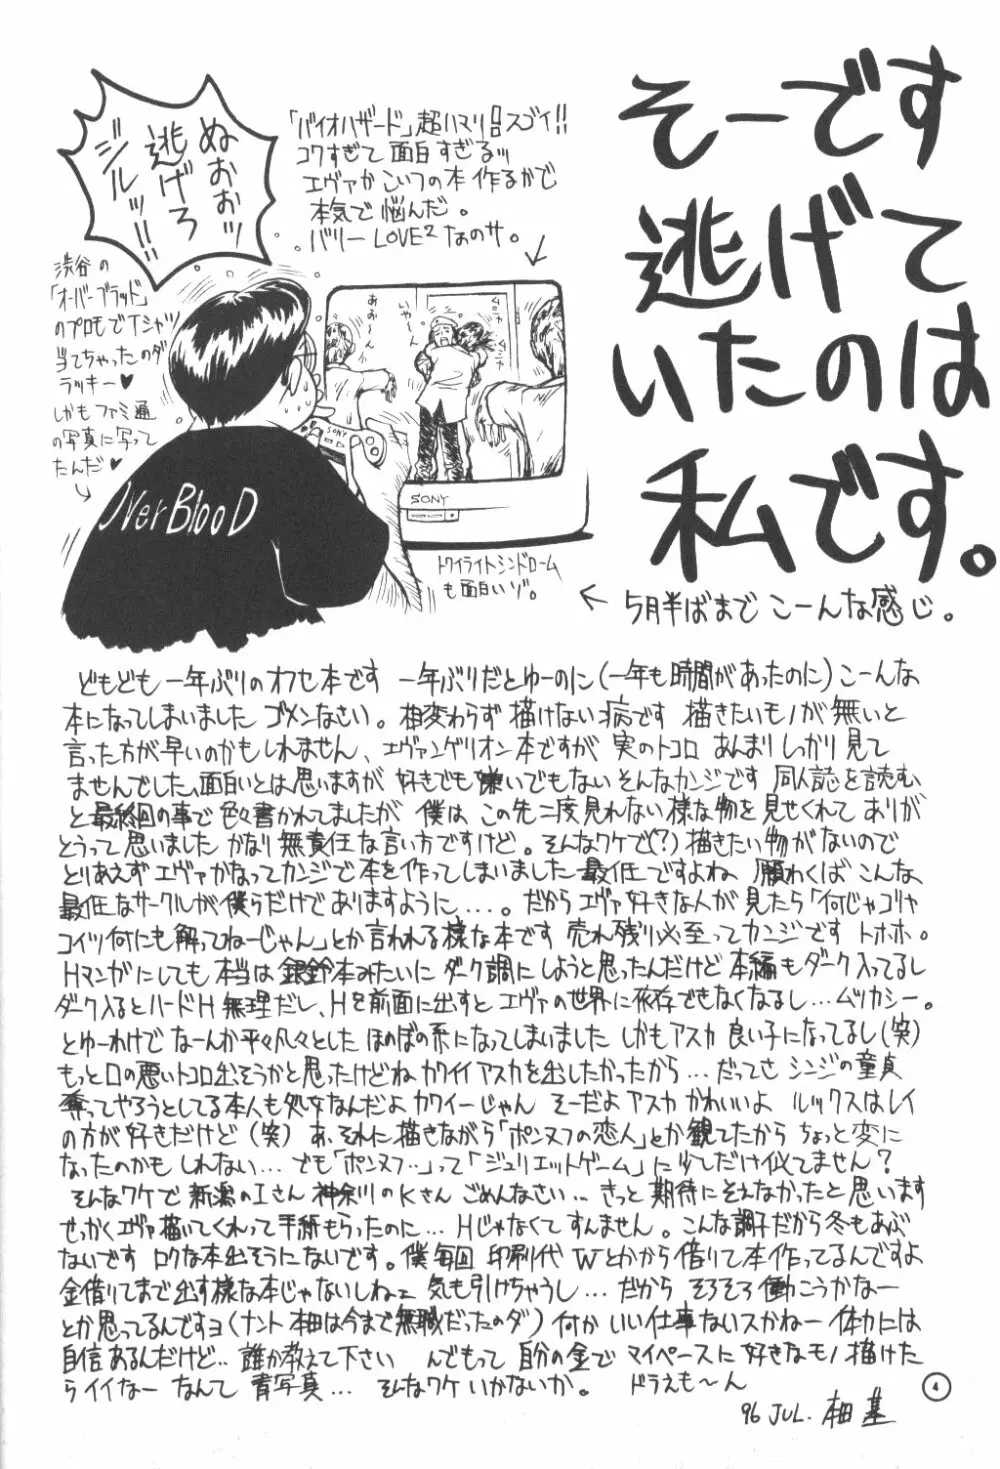 そーです
逃げて
いたのは
私です。
「バイオハザード」超ハマリ!!スゴイ!!
コワすぎて面白すぎるッ
エヴァかこいつの本作るかで
本気で悩んだ。
バリーLOVE2なのサ。
ぬおおッ
逃げろ
ジルッ!!
渋谷の
「オーバーブラッド」
のプロモでTシャツ
当てちゃったのダ
ラッキー♥
しかもファミ通
の写真に写って
たんだ♥
いやーん
おおーん
SONY
OverBlooD
SONY
トワイライトシンドローム
も面白いゾ。
← 5月半ばまでこーんな感じ。
どもども一年ぶりのオフセ本です 一年ぶりだとゆーのに(一年も時間があったのに)こーんな
本になってしまいました ゴメンなさい。相変わらず描けない病です 描きたいモノが無いと
言った方が早いのかもしれません、エヴァンゲリオン本ですが 実のトコロ あんまりしっかり見て
ませんでした。面白いとは思いますが 好きでも嫌いでもない そんなカンジです 同人誌を読む
と最終回の事で色々書かれてましたが 僕は この先二度見れない様な物を見せくれて ありが
とうって思いました かなり無責任な言い方ですけど。そんなワケで(?)描きたい物がないので
とりあえず エヴァかなってカンジで本を作ってしまいました 最低ーですよね 願わくば こんな
最低なサークルが僕らだけでありますように...。だからエヴァ好きな人が見たら「何じゃゴリャ
コイツ何にも解ってねーじゃん」とか言われる様な本です 売れ残り必至ってカンジです トホホ。
Hマンガにしても 本当は銀鈴本みたいに ダーク調にしようと思ったんだけど 本編もダーク入ってるし
ダーク入るとハードH無理だし、Hを前面に出すと エヴァの世界に依存できなくなるし...ムツカシー。
とゆーわけで なーんか平々凡々とした ほのぼの系になってしまいました しかもアスカ良い子になってるし(笑)
もっと口の悪いトコロ出そうかと思ったけどね カワイイアスカを出したかったから...だってさ シンジの童貞
奪ってやろうとしてる本人も処女なんだよ カワイーじゃん そーだよ アスカ かわいいよ ルックスはレイ
の方が好きだけど(笑) あ、それに描きながら「ポンヌフの恋人」とか観てたから ちょっと変に
なったのかもしれない... でも「ポンヌフ‥」って「ジュリエットゲーム」に少しだけ似てません?
そんなワケで 新潟のIさん 神奈川のKさん ごめんなさい‥ きっと 期待にそえなかったと思います
せっかくエヴァ描いてくれって手紙もらったのに... Hじゃなくて すんません。こんな調子だから冬もあぶ
ないです ロクな本出そうにないです。僕毎回 印刷代 Wとかから借りて本作ってるんですよ
金借りてまで出す様な本じゃないしねェ 気も引けちゃうし... だから そろそろ働こうかなー
とか思ってるんですヨ(ナント 本田は今まで無職だったのダ) 何か いい仕事ないスかねー 体力には
自信あるんだけど‥ 誰か教えて下さい んでもって 自分の金で マイペースに 好きなモノ 描けた
らイイなー なんて 青写真... そんなワケ いかないか。 ドラえも〜ん
96 JUL. 本田 基
4